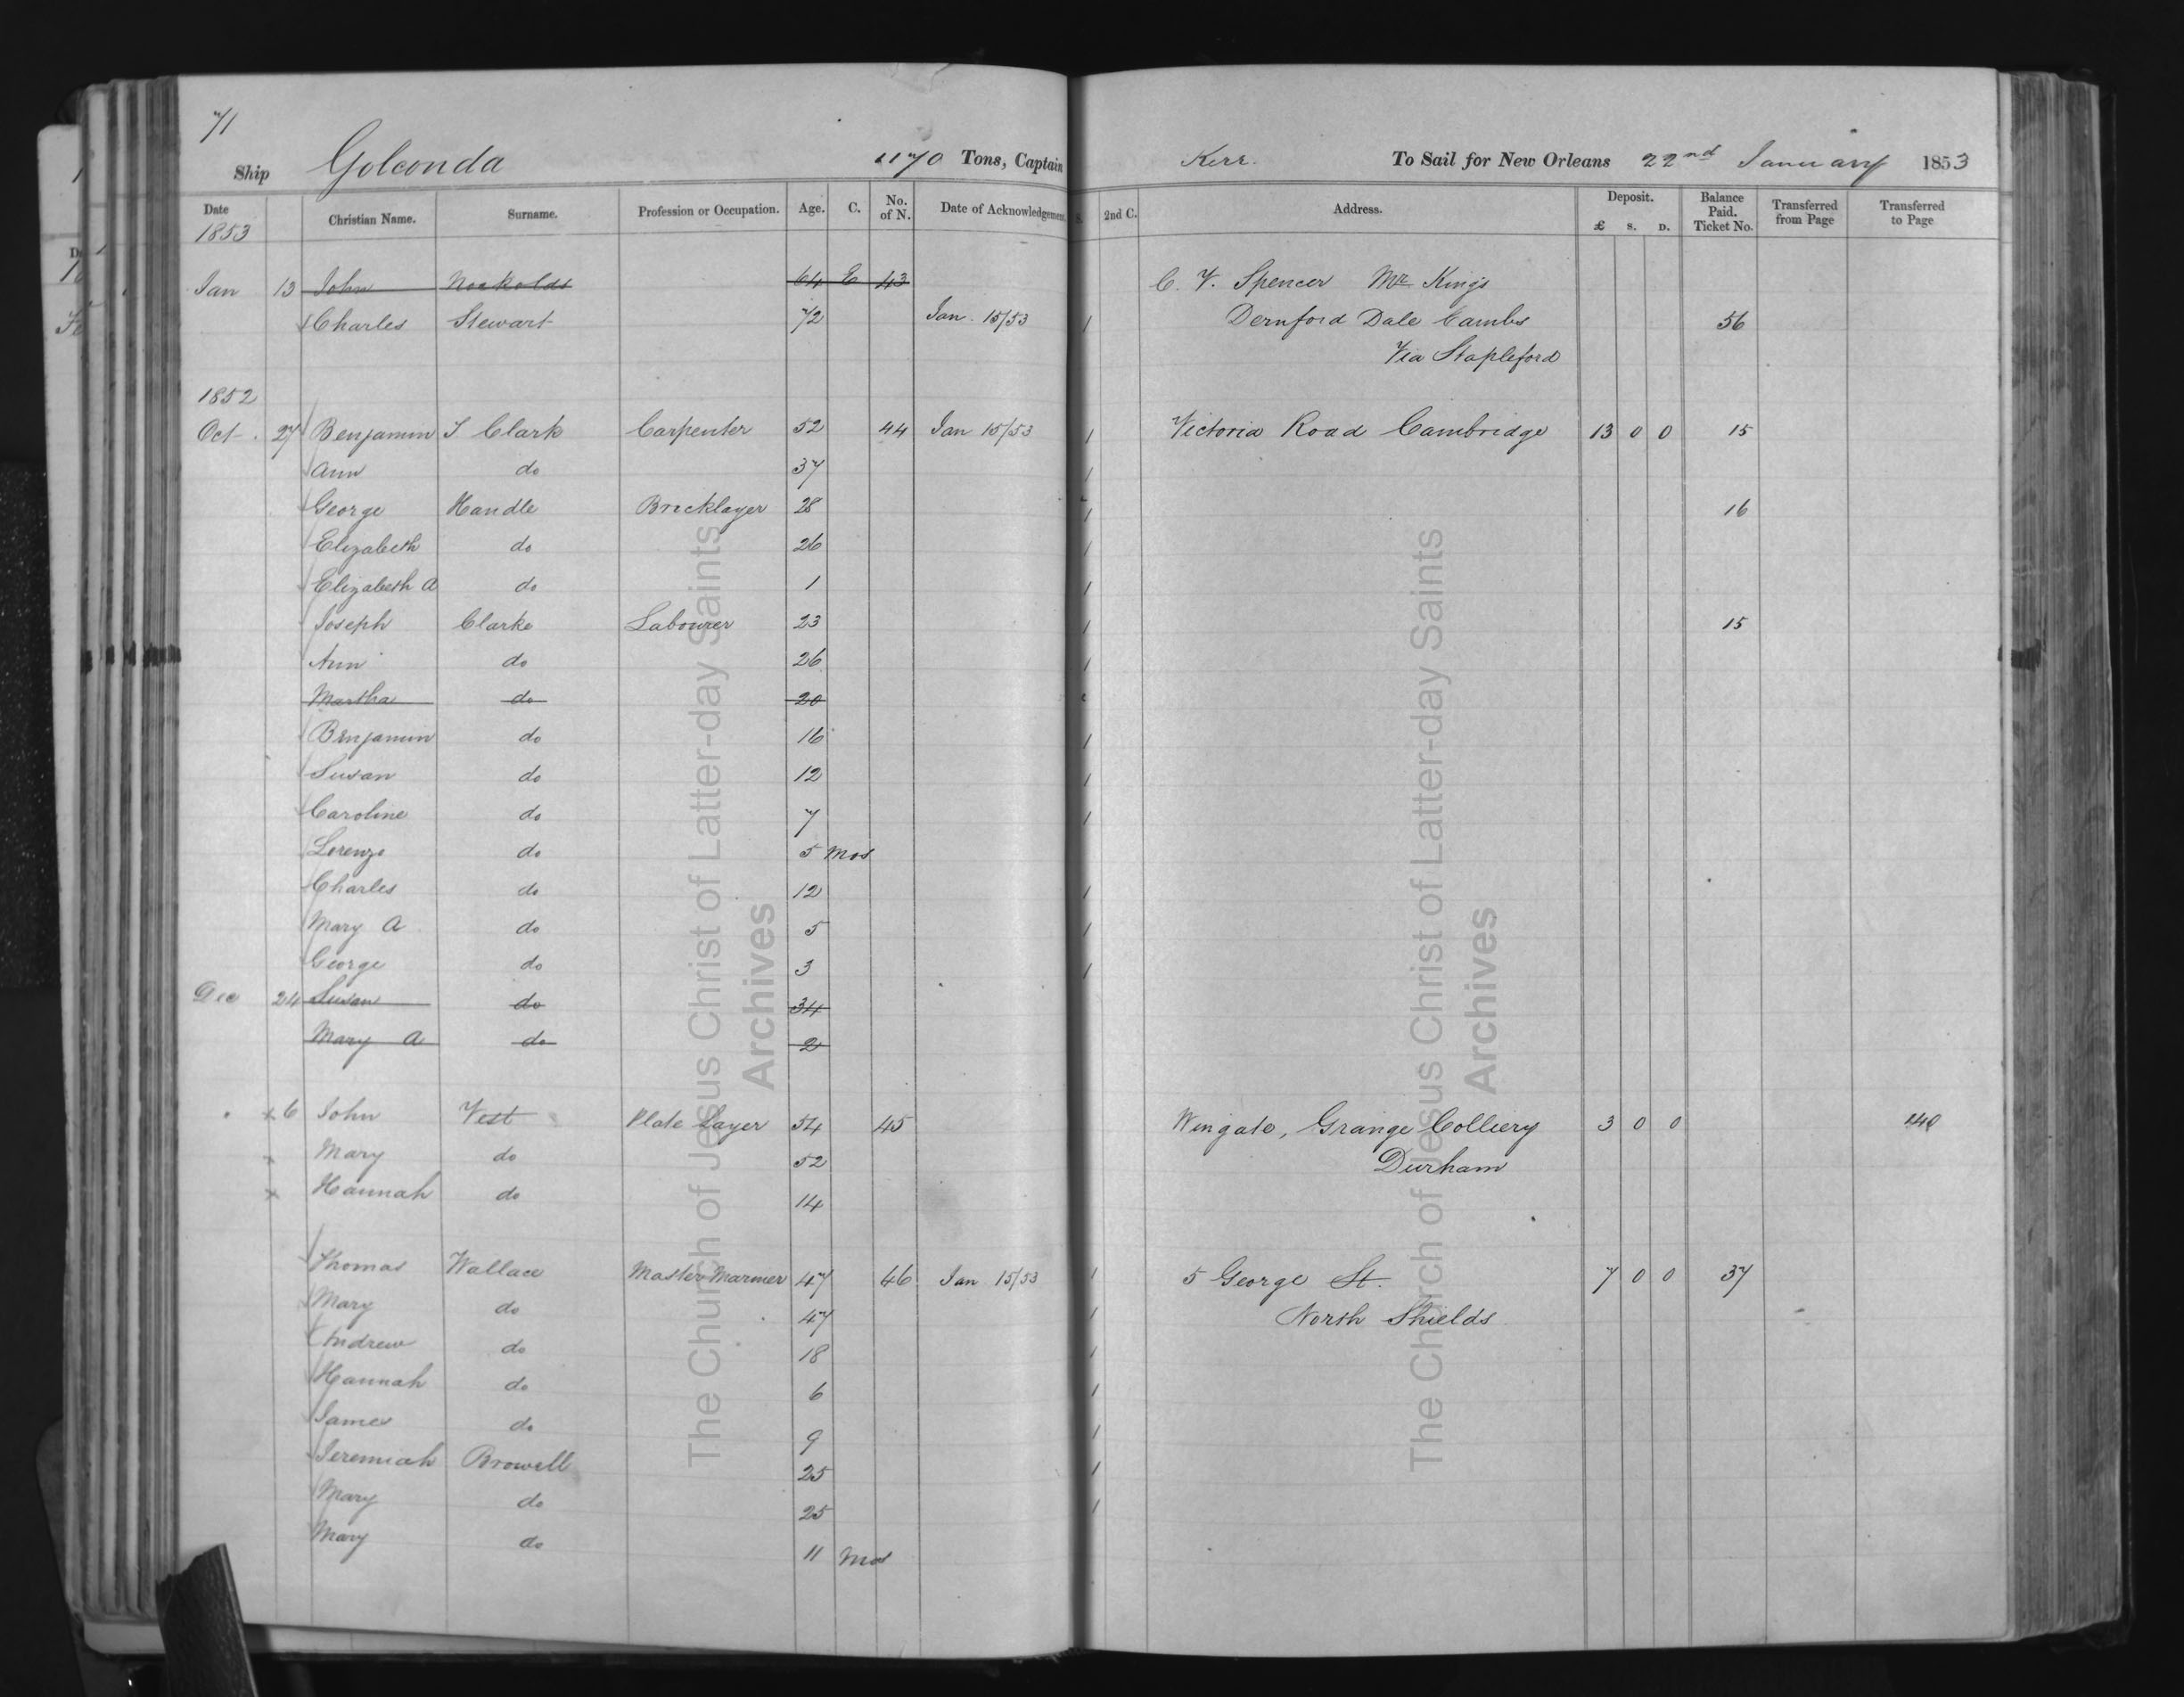 71
Ship Golconda 1170 Tons, Captain Kerr. To Sail for New Orleans 22nd January 1853
Date Christian Name. Surname. Profession or Occupation. Age. C. No. of N. Date of Acknowledgement. 2nd C. Address. Deposit. £ S. D. Balance Paid. Ticket No. Transferred from Page Transferred to Page
1853
Jan 13 John Nockolds 64 E 43 C. V. Spencer Mr Kings
Charles Stewart 72 Jan. 15/53 1 Dernford Dale Cambs 56
Via Stapleford
1852
Oct. 27 Benjamin T Clark Carpenter 52 44 Jan 15/53 1 Victoria Road Cambridge 13 0 0 15
Ann do 37 1
George Handle Bricklayer 28 1 16
Elizabeth do 26 1
Elizabeth A do 1 1
Joseph Clarke Labourer 23 1 15
Ann do 26 1
Martha do 20
Benjamin do 16 1
Susan do 12 1
Caroline do 7 1
Lorenzo do 5 mos
Charles do 12 1
Mary A do 5 1
George do 3 1
Dec 24 Susan do 34
Mary A do 2
x 6 John Vest Plate Layer 54 45 Wingate, Grange Colliery 3 0 0 140
x Mary do 52 Durham
x Hannah do 14
Thomas Wallace Master Mariner 47 46 Jan 15/53 1 5 George St. 7 0 0 37
Mary do 47 1 North Shields
Andrew do 18 1
Hannah do 6 1
James do 9 1
Jeremiah Browell 25 1
Mary do 25 1
Mary do 11 Mos
The Church of Jesus Christ of Latter-day Saints
Archives
The Church of Jesus Christ of Latter-day Saints
Archives